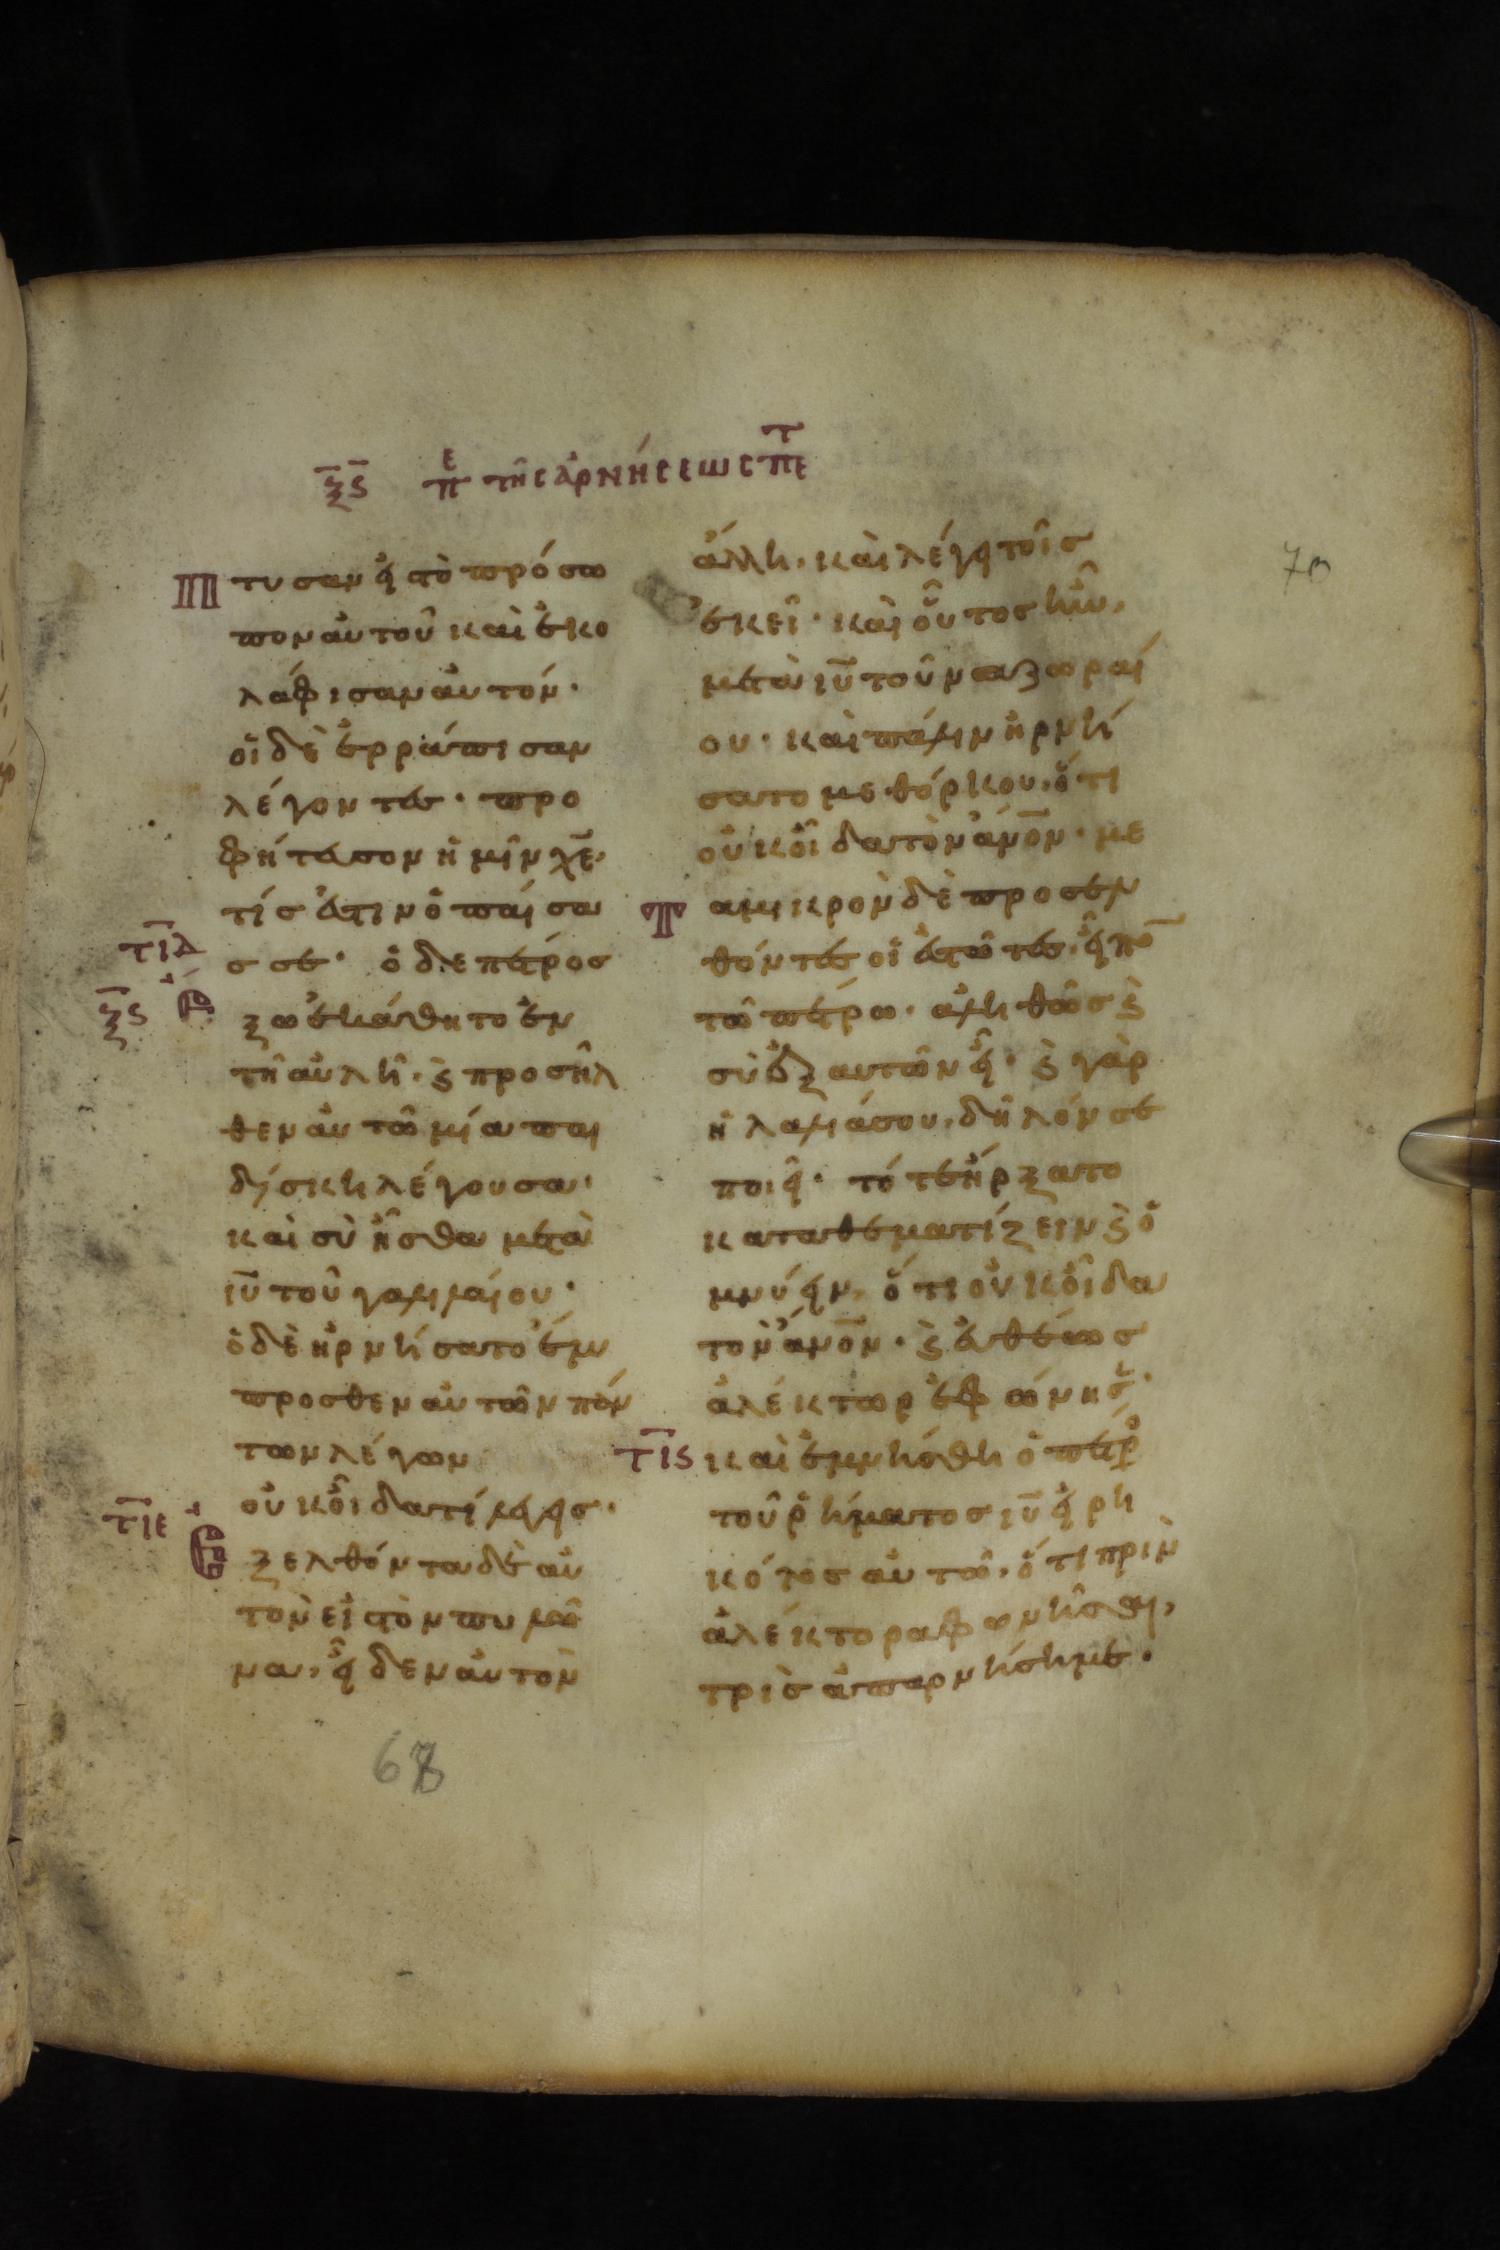 ξς πε τῆς ἀρνήσεως πετ
Πτυσαν εἰς τὸ πρόσω
πον αὐτοῦ καὶ ἐκο
λάφισαν αὐτόν·
οἱ δὲ ἐρράπισαν
λέγοντες· προ
φήτευσον ἡμῖν χε,
τίς ἐστιν ὁ παίσα
σ σε· ὁ δε πέτρος
Ἔξω ἐκάθητο ἐν
τῆ αὐλῆ· ϗ προσῆλ
θεν αὐτῶ μία παι
δίσκη λέγουσα·
καὶ σὺ ἦσθα μετὰ
ιυ τοῦ γαλιλαίου·
ὁ δὲ ἠρνήσατο ἔμ
προσθεν αὐτῶν πάν
των λέγων
οὐκ οἶδα τί λέγεις·
Ἐξελθόντα δὲ αὐ
τὸν εἰς τὸν πυλῶ
να, εἶδεν αὐτὸν
ἄλλη· καὶ λέγει τοῖς
ἐκεῖ· καὶ οὗτος ἦν,
μετὰ ιυ τοῦ ναζωραί
ου· καὶ πάλιν ἠρνή
σατο μεθόρκου, ὅτι
οὐκ οἶδα τὸν ἀνον· με
Τὰ μικρὸν δὲ προσελ
θόντες οἱ ἑστῶτες, εἶπον
τῶ πέτρω· ἀληθῶς ϗ
σὺ ἐξ αὐτῶν εἶ· ϗ γὰρ
ἡ λαλιά σου, δῆλόν σε
ποιεῖ· τότε ἤρξατο
καταθεματίζειν ϗ ὀ
μνύειν, ὅτι οὐκ οἶδα
τὸν ἀνον· ϗ εὐθέως
ἀλέκτωρ ἐφώνησε·
τις καὶ ἐμνήσθη ὁ πέτρο
τοῦ ῥήματος ιυ εἰρη
κότος αὐτῶ, ὅτι πρὶν
ἀλέκτορα φωνῆσαι,
τρὶς ἀπαρνήση με·
τιδ
ξς
τιε
70
68